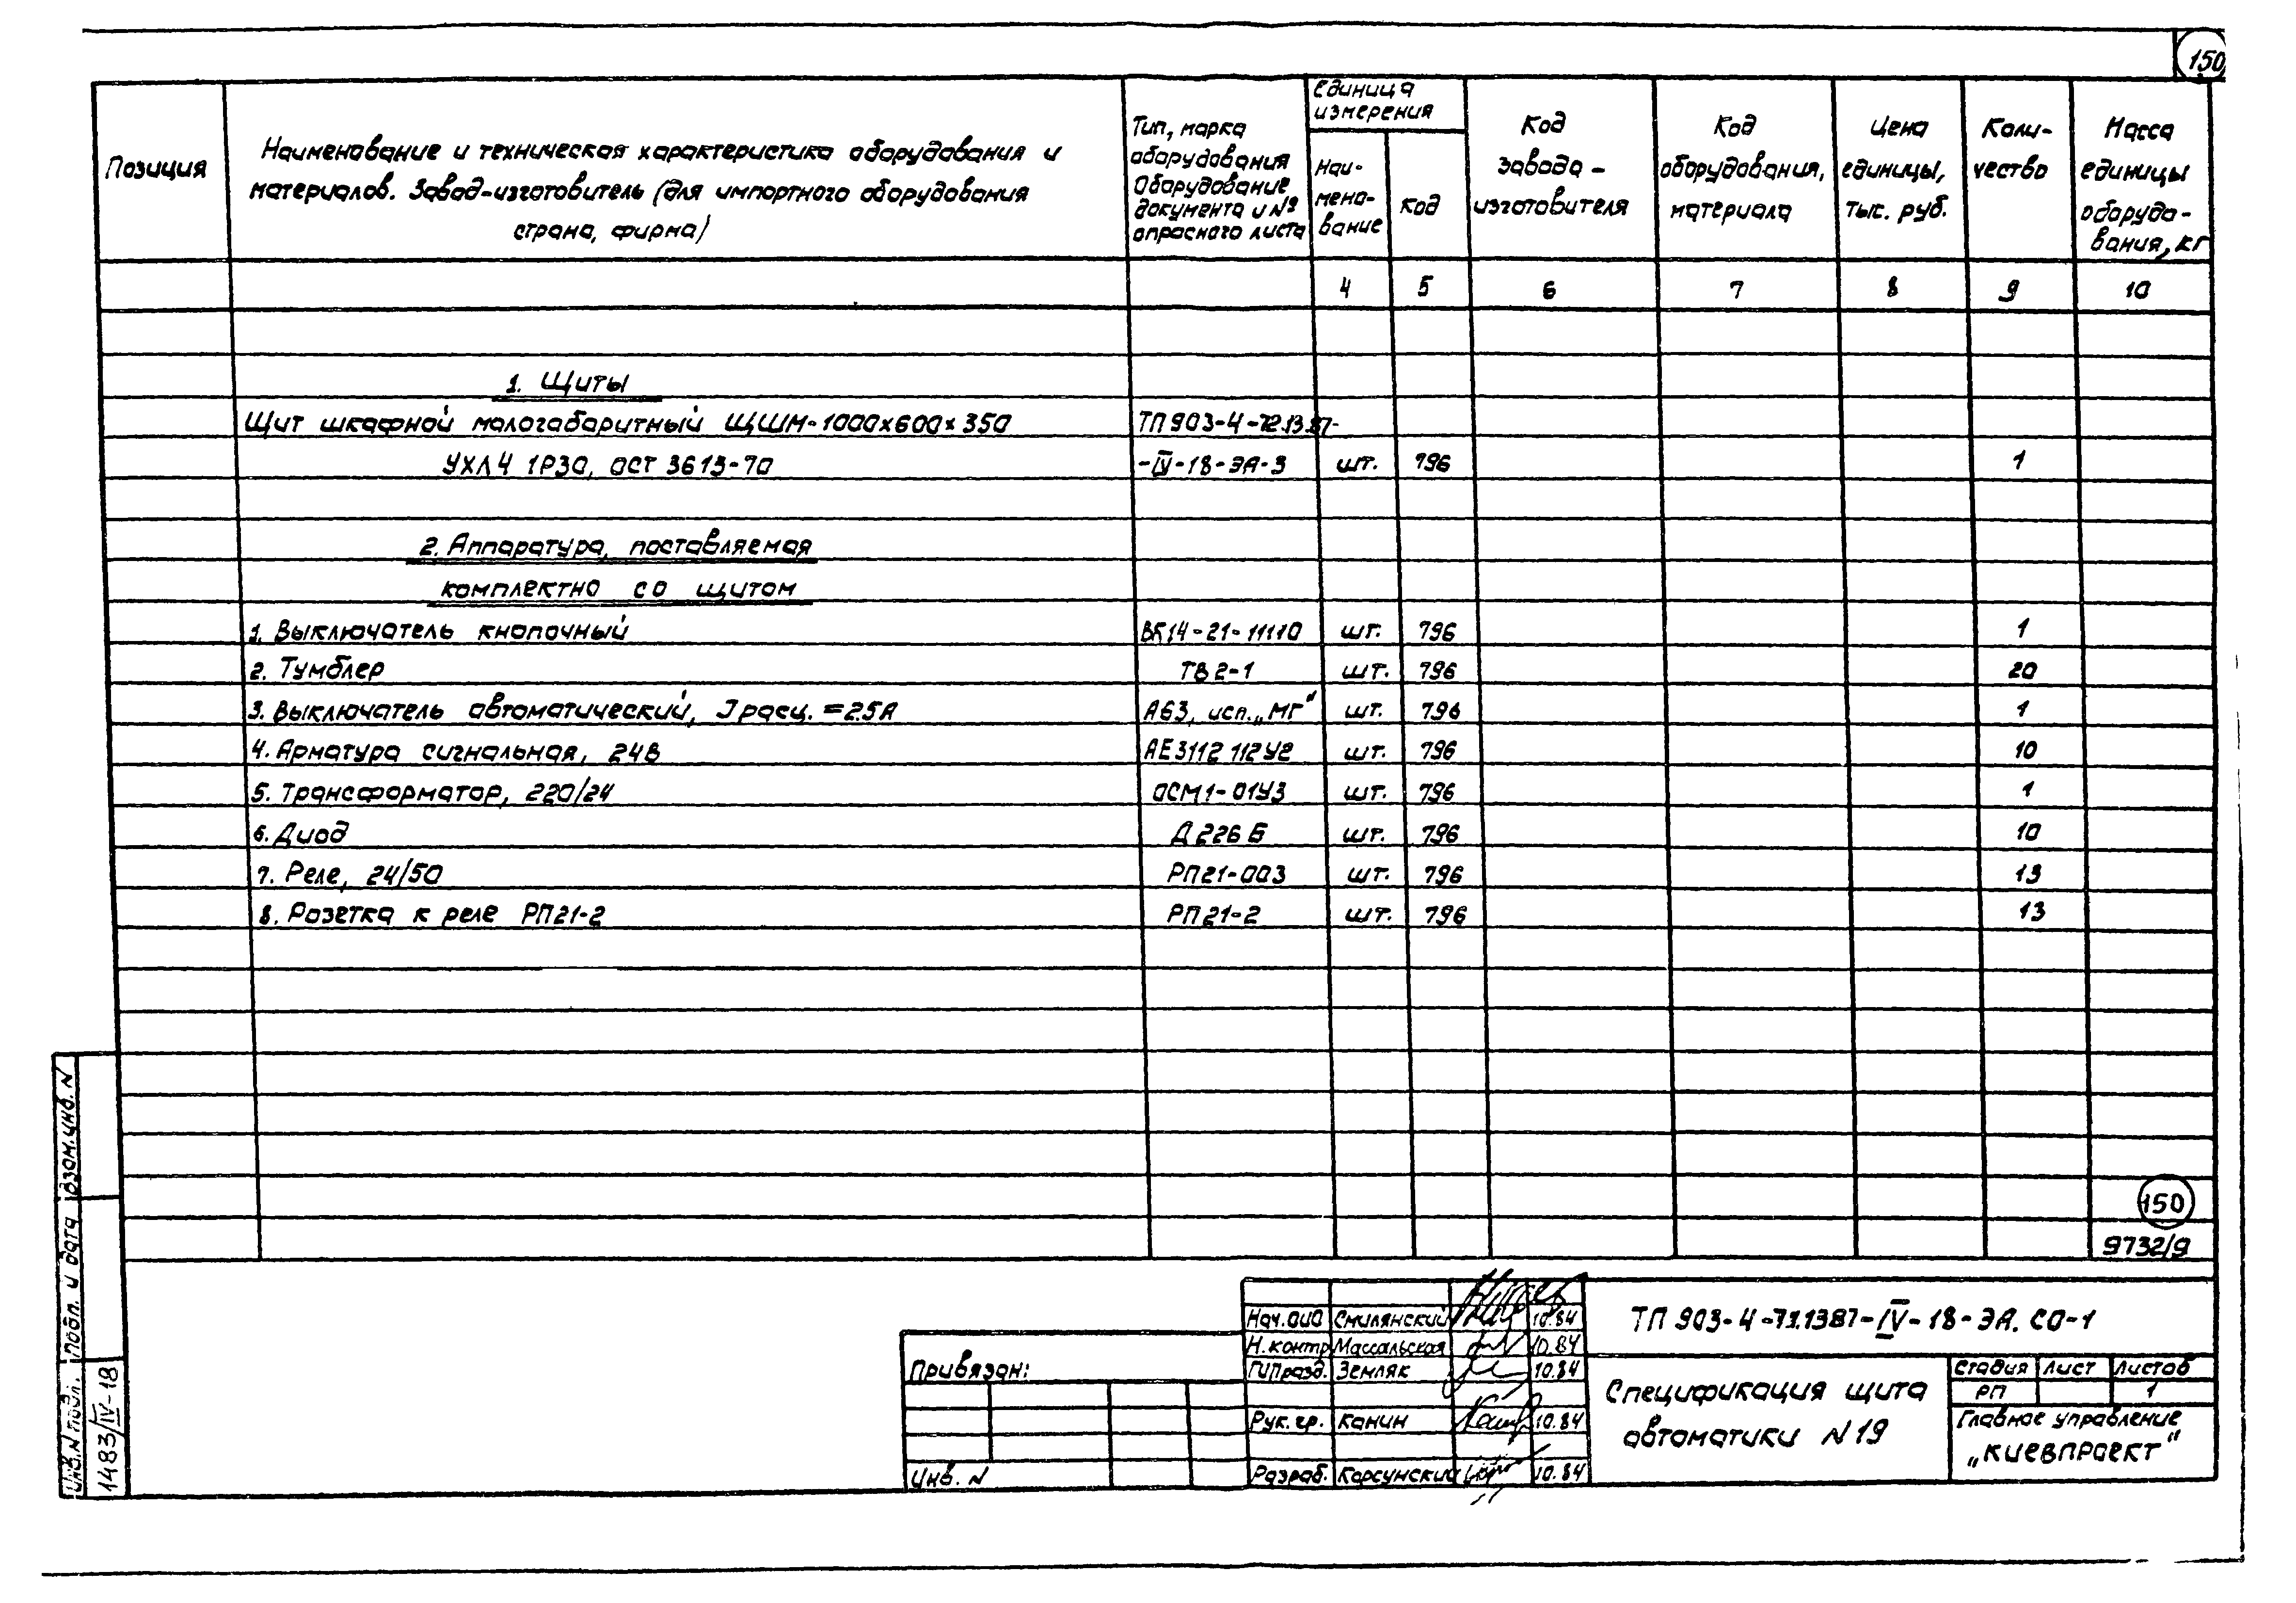 150
Позиция
Наименование и техническая характеристика оборудования и
материалов. Завод-изготовитель (для импортного оборудования
страна, фирма)
Тип, марка
оборудования
Оборудование
документа и №
опросного листа
единица
измерения
Наи-
мено-
вание
код
Код
завода -
изготовителя
Код
оборудования,
материала
Цена
единицы,
тыс. руб.
Коли-
чество
Масса
единицы
оборудо-
вания, кг
4 5 6 7 8 9 10
1. Щиты
Щит шкафной малогабаритный ЩШМ-1000х600х350 ТП903-4-72.13.87-
УХЛ4 1Р30, ОСТ 3613-70 -IV-18-ЭА-3 шт. 796 1
2. Аппаратура, поставляемая
комплектно со щитом
1. Выключатель кнопочный ВК14-21-11110 шт. 796 1
2. Тумблер ТВ2-1 шт. 796 20
3. Выключатель автоматический, Iрасц. = 2.5А А63, исп. „МГ" шт. 796 1
4. Арматура сигнальная, 24В АЕ3112 112У2 шт. 796 10
5. Трансформатор, 220/24 ОСМ1-01У3 шт. 796 1
6. Диод Д226Б шт. 796 10
7. Реле, 24/50 РП21-003 шт. 796 13
8. Розетка к реле РП21-2 РП21-2 шт. 796 13
150
9732/9
Взам.инв. N
Подп. и дата
Инв. N подл.
1483/IV-18
Привязан:
Инв. N
Нач. ОИО Смилянский 10.84
Н. контр Массальская 10.84
ГИПразд. Земляк 10.84
Рук. гр. Канин 10.84
Разраб. Корсунский 10.84
ТП 903-4- -IV-18-ЭА. СО-1
Спецификация щита
автоматики N19
Стадия Лист Листов
РП 1
Главное управление
„КИЕВПРОЕКТ"